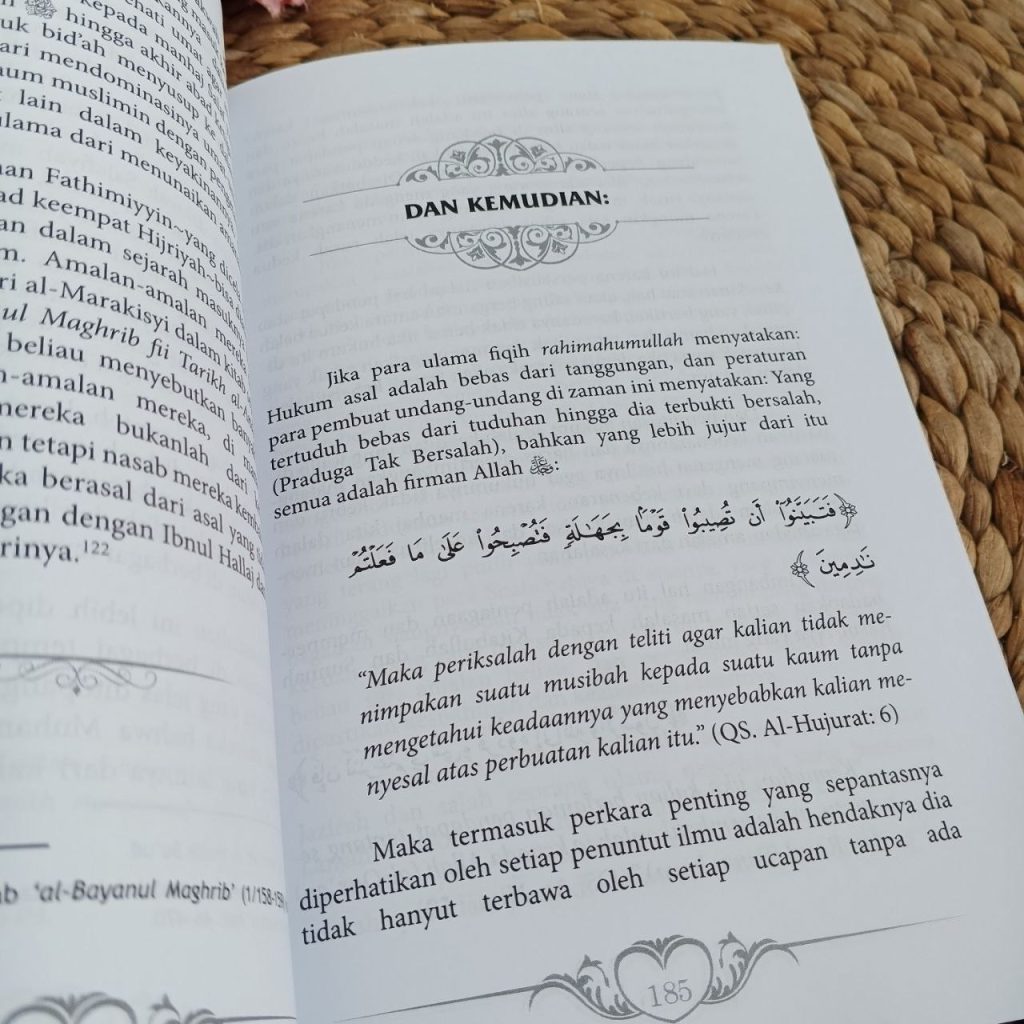 kepada umat
kepada manhaj
hingga akhir abad
uk bid'ah menyusup ke
ari mendominasinya
aum muslimin dengan
lain dalam keyakinannya
ulama dari menunaikan
an Fathimiyyin~yang
ad keempat Hijriyah~bisa
an dalam sejarah masuknya
m. Amalan-amalan mereka
ri al-Marakisyi dalam kitab
ul Maghrib fii Tarikh
beliau menyebutkan
n-amalan mereka, di
mereka bukanlah dari
n tetapi nasab mereka
ka berasal dari asal yang
gan dengan Ibnul Hallaj
rinya.122
ab 'al-Bayanul Maghrib' (1/158-159
DAN KEMUDIAN:
Jika para ulama fiqih rahimahumullah menyatakan:
Hukum asal adalah bebas dari tanggungan, dan peraturan
para pembuat undang-undang di zaman ini menyatakan: Yang
tertuduh bebas dari tuduhan hingga dia terbukti bersalah,
(Praduga Tak Bersalah), bahkan yang lebih jujur dari itu
semua adalah firman Allah ﷻ:
﴿فَتَبَيَّنُوٓا۟ أَن تُصِيبُوا۟ قَوْمًۢا بِجَهَـٰلَةٍ فَتُصْبِحُوا۟ عَلَىٰ مَا فَعَلْتُمْ
نَـٰدِمِينَ﴾
“Maka periksalah dengan teliti agar kalian tidak me-
nimpakan suatu musibah kepada suatu kaum tanpa
mengetahui keadaannya yang menyebabkan kalian me-
nyesal atas perbuatan kalian itu.” (QS. Al-Hujurat: 6)
Maka termasuk perkara penting yang sepantasnya
diperhatikan oleh setiap penuntut ilmu adalah hendaknya dia
tidak hanyut terbawa oleh setiap ucapan tanpa ada
185